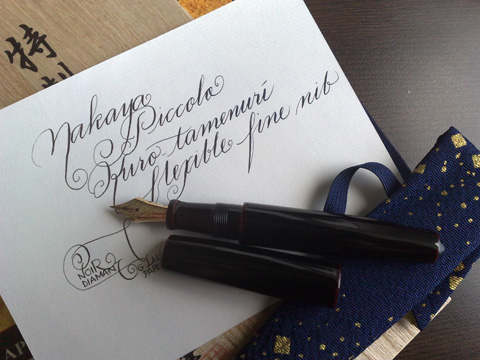 特製
Nakaya
Piccolo
Kuro-tamenuri
flexible fine nib
NOIR
DIAMAN